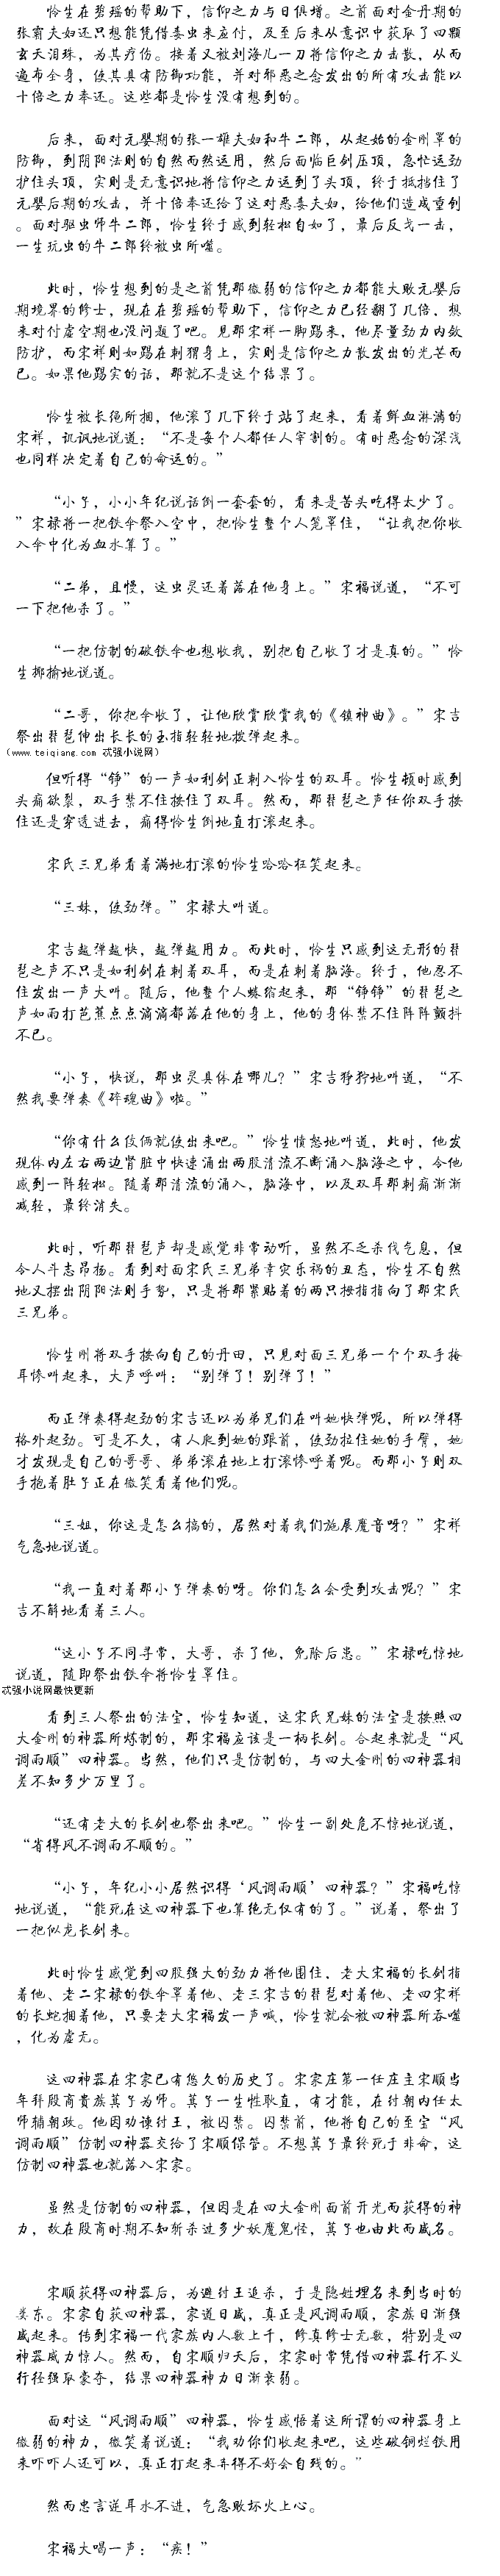 怜生在碧瑶的帮助下，信仰之力与日俱增。之前面对金丹期的
张霸夫妇还只想能凭借蚕虫来应付，及至后来从意识中获取了四颗
玄天泪珠，为其疗伤。接着又被刘海儿一刀将信仰之力击散，从而
遍布全身，使其具有防御功能，并对邪恶之念发出的所有攻击能以
十倍之力奉还。这些都是怜生没有想到的。
后来，面对元婴期的张一雄夫妇和牛二郎，从起始的金刚罩的
防御，到阴阳法则的自然而然运用，然后面临巨剑压顶，急忙运劲
护住头顶，实则是无意识地将信仰之力运到了头顶，终于抵挡住了
元婴后期的攻击，并十倍奉还给了这对恶毒夫妇，给他们造成重创
。面对驱虫师牛二郎，怜生终于感到轻松自如了，最后反戈一击，
一生玩虫的牛二郎终被虫所噬。
此时，怜生想到的是之前凭那微弱的信仰之力都能大败元婴后
期境界的修士，现在在碧瑶的帮助下，信仰之力已经翻了几倍，想
来对付虚空期也没问题了吧。见那宋祥一脚踢来，他尽量劲力内敛
防护，而宋祥则如踢在刺猬身上，实则是信仰之力散发出的光芒而
已。如果他踢实的话，那就不是这个结果了。
怜生被长绳所捆，他滚了几下终于站了起来，看着鲜血淋漓的
宋祥，讥讽地说道：“不是每个人都任人宰割的。有时恶念的深浅
也同样决定着自己的命运的。”
“小子，小小年纪说话倒一套套的，看来是苦头吃得太少了。
”宋禄将一把铁伞祭入空中，把怜生整个人笼罩住，“让我把你收
入伞中化为血水算了。”
“二弟，且慢，这虫灵还着落在他身上。”宋福说道，“不可
一下把他杀了。”
“一把仿制的破铁伞也想收我，别把自己收了才是真的。”怜
生揶揄地说道。
“二哥，你把伞收了，让他欣赏欣赏我的《镇神曲》。”宋吉
祭出琵琶伸出长长的玉指轻轻地拨弹起来。
（www.teiqiang.com 忒强小说网）
但听得“铮”的一声如利剑正刺入怜生的双耳。怜生顿时感到
头痛欲裂，双手禁不住按住了双耳。然而，那琵琶之声任你双手按
住还是穿透进去，痛得怜生倒地直打滚起来。
宋氏三兄弟看着满地打滚的怜生哈哈狂笑起来。
“三妹，使劲弹。”宋禄大叫道。
宋吉越弹越快，越弹越用力。而此时，怜生只感到这无形的琵
琶之声不只是如利剑在刺着双耳，而是在刺着脑海。终于，他忍不
住发出一声大叫。随后，他整个人蜷缩起来，那“铮铮”的琵琶之
声如雨打芭蕉点点滴滴都落在他的身上，他的身体禁不住阵阵颤抖
不已。
“小子，快说，那虫灵具体在哪儿？”宋吉狞狞地叫道，“不
然我要弹奏《碎魂曲》啦。”
“你有什么伎俩就使出来吧。”怜生愤怒地叫道，此时，他发
现体内左右两边肾脏中快速涌出两股清流不断涌入脑海之中，令他
感到一阵轻松。随着那清流的涌入，脑海中，以及双耳那刺痛渐渐
减轻，最终消失。
此时，听那琵琶声却是感觉非常动听，虽然不乏杀伐气息，但
令人斗志昂扬。看到对面宋氏三兄弟幸灾乐祸的丑态，怜生不自然
地又摆出阴阳法则手势，只是将那紧贴着的两只拇指指向了那宋氏
三兄弟。
怜生刚将双手按向自己的丹田，只见对面三兄弟一个个双手掩
耳惨叫起来，大声呼叫：“别弹了！别弹了！”
而正弹奏得起劲的宋吉还以为弟兄们在叫她快弹呢，所以弹得
格外起劲。可是不久，有人爬到她的跟前，使劲拉住她的手臂，她
才发现是自己的哥哥、弟弟滚在地上打滚惨呼着呢。而那小子则双
手抱着肚子正在微笑看着他们呢。
“三姐，你这是怎么搞的，居然对着我们施展魔音呀？”宋祥
气急地说道。
“我一直对着那小子弹奏的呀。你们怎么会受到攻击呢？”宋
吉不解地看着三人。
“这小子不同寻常，大哥，杀了他，免除后患。”宋禄吃惊地
说道，随即祭出铁伞将怜生罩住。
忒强小说网最快更新
看到三人祭出的法宝，怜生知道，这宋氏兄妹的法宝是按照四
大金刚的神器所炼制的，那宋福应该是一柄长剑。合起来就是“风
调雨顺”四神器。当然，他们只是仿制的，与四大金刚的四神器相
差不知多少万里了。
“还有老大的长剑也祭出来吧。”怜生一副处危不惊地说道，
“省得风不调雨不顺的。”
“小子，年纪小小居然识得‘风调雨顺’四神器？”宋福吃惊
地说道，“能死在这四神器下也算绝无仅有的了。”说着，祭出了
一把似龙长剑来。
此时怜生感觉到四股强大的劲力将他围住，老大宋福的长剑指
着他、老二宋禄的铁伞罩着他、老三宋吉的琵琶对着他、老四宋祥
的长蛇捆着他，只要老大宋福发一声喊，怜生就会被四神器所吞噬
，化为虚无。
这四神器在宋家已有悠久的历史了。宋家庄第一任庄主宋顺当
年拜殷商贵族箕子为师。箕子一生性耿直，有才能，在纣朝内任太
师辅朝政。他因劝谏纣王，被囚禁。囚禁前，他将自己的至宝“风
调雨顺”仿制四神器交给了宋顺保管。不想箕子最终死于非命，这
仿制四神器也就落入宋家。
虽然是仿制的四神器，但因是在四大金刚面前开光而获得的神
力，故在殷商时期不知斩杀过多少妖魔鬼怪，箕子也由此而威名。
宋顺获得四神器后，为避纣王追杀，于是隐姓埋名来到当时的
娄东。宋家自获四神器，家道日盛，真正是风调雨顺，家族日渐强
盛起来。传到宋福一代家族内人数上千，修真修士无数，特别是四
神器威力惊人。然而，自宋顺归天后，宋家时常凭借四神器行不义
行径强取豪夺，结果四神器神力日渐衰弱。
面对这“风调雨顺”四神器，怜生感悟着这所谓的四神器身上
微弱的神力，微笑着说道：“我劝你们收起来吧，这些破铜烂铁用
来吓吓人还可以，真正打起来弄得不好会自残的。”
然而忠言逆耳水不进，气急败坏火上心。
宋福大喝一声：“疾！”